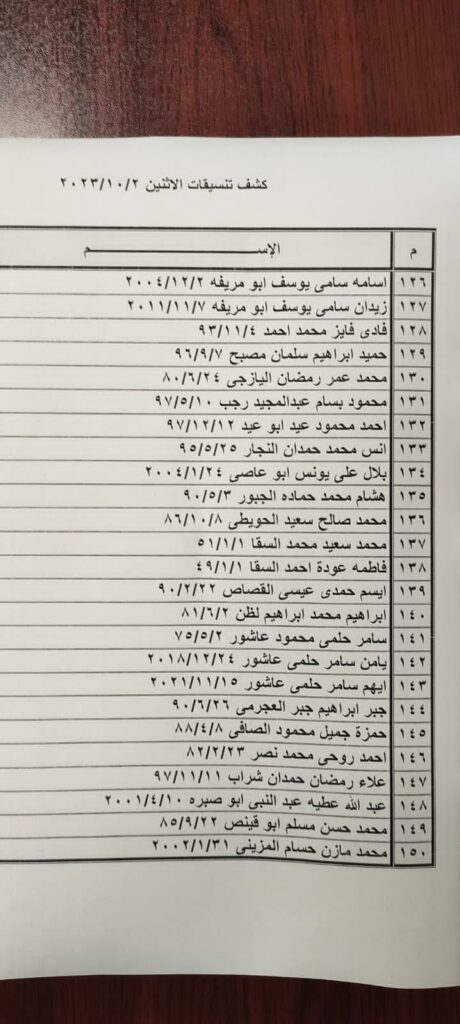 كشف تنسيقات الاثنين ٢٠٢٣/١٠/٢
م الإســـــــــــم
١٢٦ اسامه سامى يوسف ابو مريفه ٢٠٠٤/١٢/٢
١٢٧ زيدان سامى يوسف ابو مريفه ٢٠١١/١١/٧
١٢٨ فادى فايز محمد احمد ٩٣/١١/٤
١٢٩ حميد ابراهيم سلمان مصبح ٩٦/٩/٧
١٣٠ محمد عمر رمضان اليازجى ٨٠/٦/٢٤
١٣١ محمود بسام عبدالمجيد رجب ٩٧/٥/١٠
١٣٢ احمد محمود عيد ابو عيد ٩٧/١٢/١٢
١٣٣ انس محمد حمدان النجار ٩٥/٥/٢٥
١٣٤ بلال على يونس ابو عاصى ٢٠٠٤/١/٢٤
١٣٥ هشام محمد حماده الجبور ٩٠/٥/٣
١٣٦ محمد صالح سعيد الحويطى ٨٦/١٠/٨
١٣٧ محمد سعيد محمد السقا ٥١/١/١
١٣٨ فاطمه عودة احمد السقا ٤٩/١/١
١٣٩ ايسم حمدى عيسى القصاص ٩٠/٢/٢٢
١٤٠ ابراهيم محمد ابراهيم لظن ٨١/٦/٢
١٤١ سامر حلمى محمود عاشور ٧٥/٥/٢
١٤٢ يامن سامر حلمى عاشور ٢٠١٨/١٢/٢٤
١٤٣ ايهم سامر حلمى عاشور ٢٠٢١/١١/١٥
١٤٤ جبر ابراهيم جبر العجرمى ٩٠/٦/٢٦
١٤٥ حمزة جميل محمود الصافى ٨٨/٤/٨
١٤٦ احمد روحى محمد نصر ٨٢/٢/٢٣
١٤٧ علاء رمضان حمدان شراب ٩٧/١١/١١
١٤٨ عبد الله عطيه عبد النبى ابو صبره ٢٠٠١/٤/١٠
١٤٩ محمد حسن مسلم ابو قينص ٨٥/٩/٢٢
١٥٠ محمد مازن حسام المزينى ٢٠٠٢/١/٣١